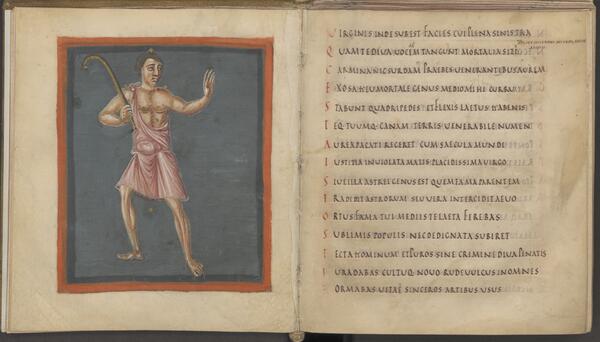 VIRGINIS INDE SUBEST FACIES CUI PLENA SINISTRA
QUAM TE DIUA UOCEM TANGUNT MORTALIA SI TE
CARMINA NEC SURDAM PRAEBES UENERANTIBUS AUREM
EXOSA HEU MORTALE GENUS MEDIO MIHI CURSU
STABUNT QUADRIPEDES ET FLEXIS LAETUS HABENIS
TEQ TUUMQ CANAM TERRIS UENERABILE NUMEN
AUREA PACATI REGERET CUM SAECULA MUNDI
IUSTITIA INUIOLATA MALIS PLACIDISSIMA UIRGO
SIUE ILLA ASTREI GENUS EST QUEM FAMA PARENTEM
TRADIT ASTRORUM SEU UERA INTERCIDIT AEUO
ORTUS FAMA TUI MEDIIS TE LAETA FEREBAS
SUBLIMIS POPULIS NEC DEDIGNATA SUBIRE
TECTA HOMINUM ET PUROS SINE CRIMINE DIUA PENATIS
IURA DABAS CULTUQ NOUO RUDE UULGUS IN OMNES
FORMABAS UITAE SINCEROS ARTIBUS USUS